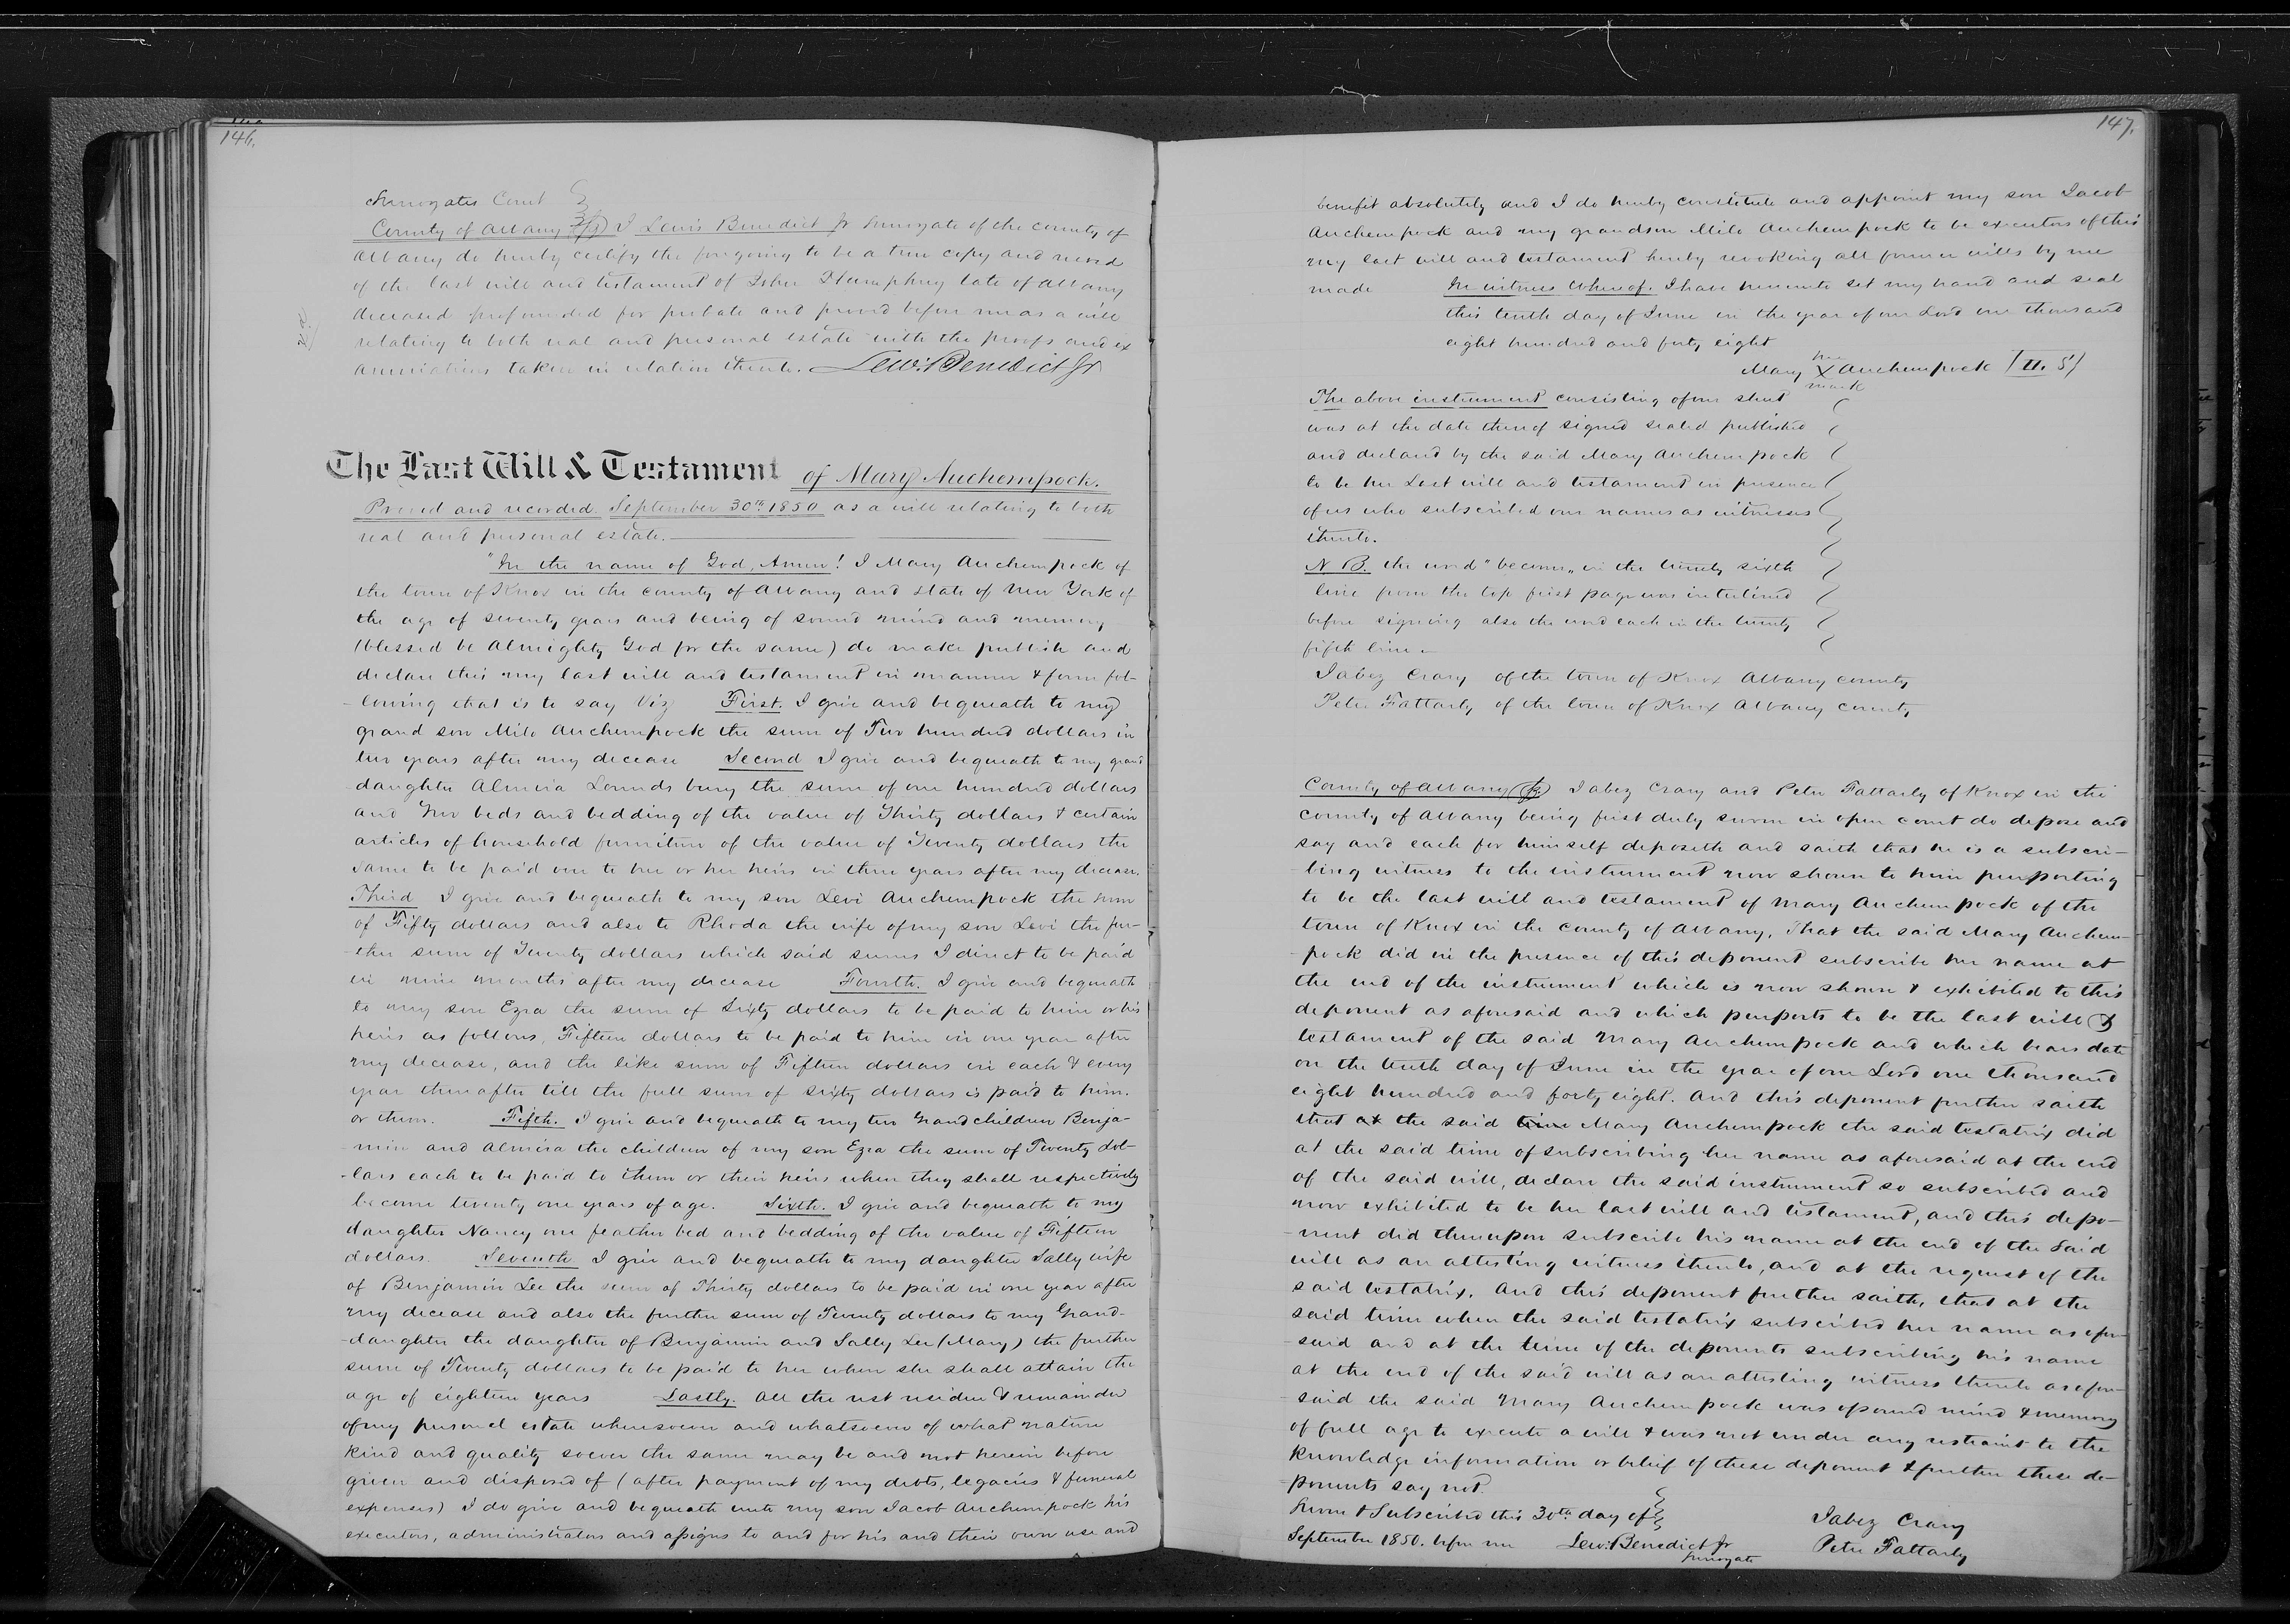 146.
Surrogates Court
County of Albany SS I Lewis Benedict Jr Surrogate of the county of
Albany do hereby certify the foregoing to be a true copy and record
of the last will and testament of Humphrey late of Albany
deceased propounded for probate and proved before me as a will
relating to both real and personal estate with the proofs and ex
aminations taken in relation thereto. Lew: Benedict Jr
The Last Will & Testament of Mary Auchempock.
Proved and recorded September 30th 1850 as a will relating to both
real and personal estate.
"In the name of God, Amen! I Mary Auchempock of
the town of Knox in the county of Albany and state of New York of
the age of seventy years and being of sound mind and memory
(blessed be Almighty God for the same) do make publish and
declare this my last will and testament in manner & form fol-
-lowing that is to say Viz First. I give and bequeath to my
grand son Milo Auchempock the sum of Two hundred dollars in
two years after my decease Second I give and bequeath to my grand
daughter Almira Lounds bury the sum of one hundred dollars
and two beds and bedding of the value of Thirty dollars & certain
articles of household furniture of the value of Twenty dollars the
same to be paid over to her or her heirs in three years after my decease.
Third I give and bequeath to my son Levi Auchempock the sum
of Fifty dollars and also to Rhoda the wife of my son Levi the fur-
-ther sum of Twenty dollars which said sums I direct to be paid
in nine months after my decease Fourth. I give and bequeath
to my son Ezra the sum of Sixty dollars to be paid to him or his
heirs as follows, Fifteen dollars to be paid to him in one year after
my decease, and the like sum of Fifteen dollars in each & every
year thereafter till the full sum of sixty dollars is paid to him.
or them. Fifth. I give and bequeath to my two Grandchildren Benja-
-min and Almira the children of my son Ezra the sum of Twenty dol-
-lars each to be paid to them or their heirs when they shall respectively
become twenty one years of age. Sixth. I give and bequeath to my
daughter Nancy one feather bed and bedding of the value of Fifteen
dollars. Seventh I give and bequeath to my daughter Sally wife
of Benjamin Lee the sum of Thirty dollars to be paid in one year after
my decease and also the further sum of Twenty dollars to my Grand-
-daughter the daughter of Benjamin and Sally Lee (Mary) the further
sum of Twenty dollars to be paid to her when she shall attain the
age of eighteen years Lastly. All the rest residue & remainder
of my personel estate wheresoever and whatsoever of what nature
kind and quality soever the same may be and not herein before
given and disposed of (after payment of my debts, legacies & funeral
expenses) I do give and bequeath unto my son Jacob Auchempock his
executors, administrators and assigns to and for his and their own use and
147.
benefit absolutely and I do hereby constitute and appoint my son Jacob
Auchempock and my grandson Milo Auchempock to be executors of this
my last will and testament hereby revoking all former wills by me
made In witness whereof. I have hereunto set my hand and seal
this tenth day of June in the year of our Lord one thousand
eight hundred and forty eight
her
Mary X Auchempock
mark
The above instrument consisting of one sheet
was at the date thereof signed sealed published
and declared by the said Mary Auchempock
to be her Last will and testament in presence
of us who subscribed our names as witnesses
thereto.
N B. the word "become" in the twenty sixth
line from the top first page was interlined
before signing also the word each in the twenty
fifth line.
Jabez Crary of the town of Knox Albany county
Peter Fattarly of the town of Knox Albany county
County of Albany SS Jabez Crary and Peter Fattarly of Knox in the
county of Albany being first duly sworn in open court do depose and
say and each for himself deposeth and saith that he is a subscri-
-bing witness to the instrument now shown to him purporting
to be the last will and testament of Mary Auchempock of the
town of Knox in the county of Albany, That the said Mary Auchem-
-pock did in the presence of this deponent subscribe her name at
the end of the instrument which is now shown & exhibited to this
deponent as aforesaid and which purports to be the last will &
testament of the said Mary Auchempock and which bears date
on the tenth day of June in the year of our Lord one thousand
eight hundred and forty eight. And this deponent further saith
that at the said time Mary Auchempock the said testatrix did
at the said time of subscribing her name as aforesaid at the end
of the said will, declare the said instrument so subscribed and
now exhibited to be her last will and testament, and this depo-
-nent did thereupon subscribe his name at the end of the said
will as an attesting witness thereto, and at the request of the
said testatrix. And this deponent further saith, that at the
said time when the said testatrix subscribed her name as afore-
-said and at the time of the deponents subscribing his name
at the end of the said will as an attesting witness thereto as afore-
-said the said Mary Auchempock was of sound mind & memory
of full age to execute a will & was not under any restraint to the
knowledge information or belief of these deponent & further these de-
-ponents say not.
Sworn & Subscribed this 30th day of
September 1850. before me
Lew: Benedict Jr
Surrogate
Jabez Crary
Peter Fattarly